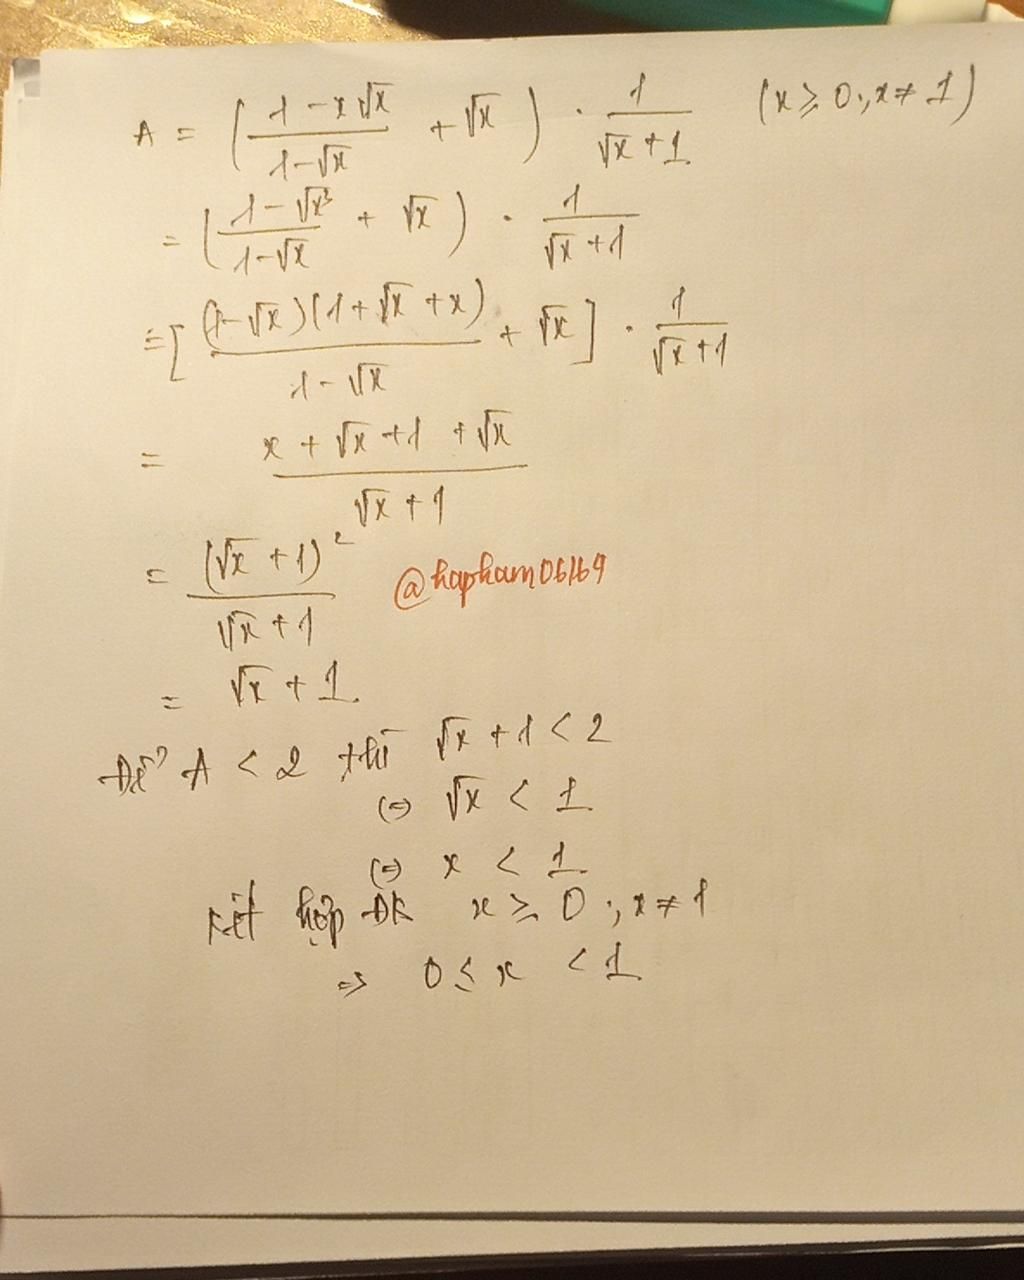 A = ( (1 - x√x)/(1-√x) + √x ) · 1/(√x + 1) (x ≥ 0 ; x ≠ 1)
= ( (1 - √x³)/(1-√x) + √x ) · 1/(√x + 1)
= [ (1-√x)(1+√x +x)/(1 - √x) + √x ] · 1/(√x + 1)
= (x + √x + 1 + √x)/(√x + 1)
= (√x + 1)²/(√x + 1)
@hapham06169
= √x + 1
Để A < 2 thì √x + 1 < 2
(=) √x < 1
(=) x < 1
Kết hợp ĐK x ≥ 0 ; x ≠ 1
=> 0 ≤ x < 1